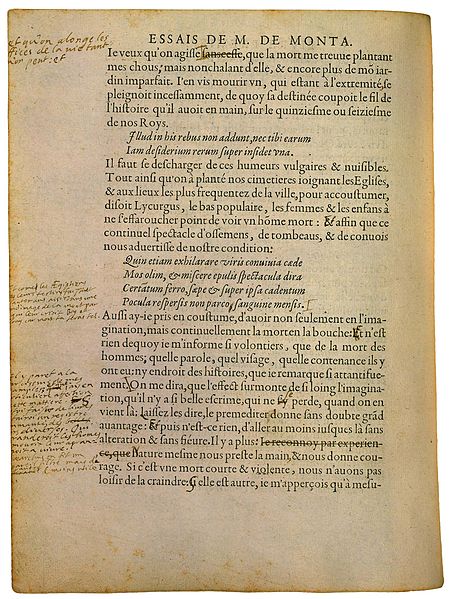 et qu'on alonge les
offices de la vie tant
qu'on peut: et
ESSAIS DE M. DE MONTA.
Ie veux qu'on agisse sans cesse, que la mort me treuue plantant
mes chous; mais nonchalant d'elle, & encore plus de mõ iar-
din imparfait. I'en vis mourir vn, qui estant à l'extremité, se
pleignoit incessamment, de quoy sa destinée coupoit le fil de
l'histoire qu'il auoit en main, sur le quinziesme ou seiziesme
de nos Roys.
Illud in his rebus non addunt, nec tibi earum
Iam desiderium rerum super insidet vna.
Il faut se descharger de ces humeurs vulgaires & nuisibles.
Tout ainsi qu'on à planté nos cimetieres ioignant les Eglises,
& aux lieux les plus frequentez de la ville, pour accoustumer,
disoit Lycurgus, le bas populaire, les femmes & les enfans à
ne s'effaroucher point de voir vn hõme mort: & affin que ce
continuel spectacle d'ossemens, de tombeaux, & de conuois
nous aduertisse de nostre condition:
Quin etiam exhilarare viris conuiuia cæde
Mos olim, & miscere epulis spectacula dira
Certãtum ferro, sæpe & super ipsa cadentum
Pocula respersis non parco sanguine mensis.
Aussi ay-ie pris en coustume, d'auoir non seulement en l'ima-
gination, mais continuellement la mort en la bouche: Et n'est
rien dequoy ie m'informe si volontiers, que de la mort des
hommes; quelle parole, quel visage, quelle contenance ils y
ont eu: ny endroit des histoires, que ie remarque si attantifue-
ment. On me dira, que l'effect surmonte de si loing l'imagina-
tion, qu'il n'y a si belle escrime, qui ne se perde, quand on en
vient là: laissez les dire, le premediter donne sans doubte grãd
auantage: Et puis n'est-ce rien, d'aller au moins iusques là sans
alteration & sans fiéure. Il y a plus: Ie reconnoy par experien-
ce, que Nature mesme nous preste la main, & nous donne cou-
rage. Si c'est vne mort courte & violente, nous n'auons pas
loisir de la craindre: S'elle est autre, ie m'apperçois qu'à mesu-